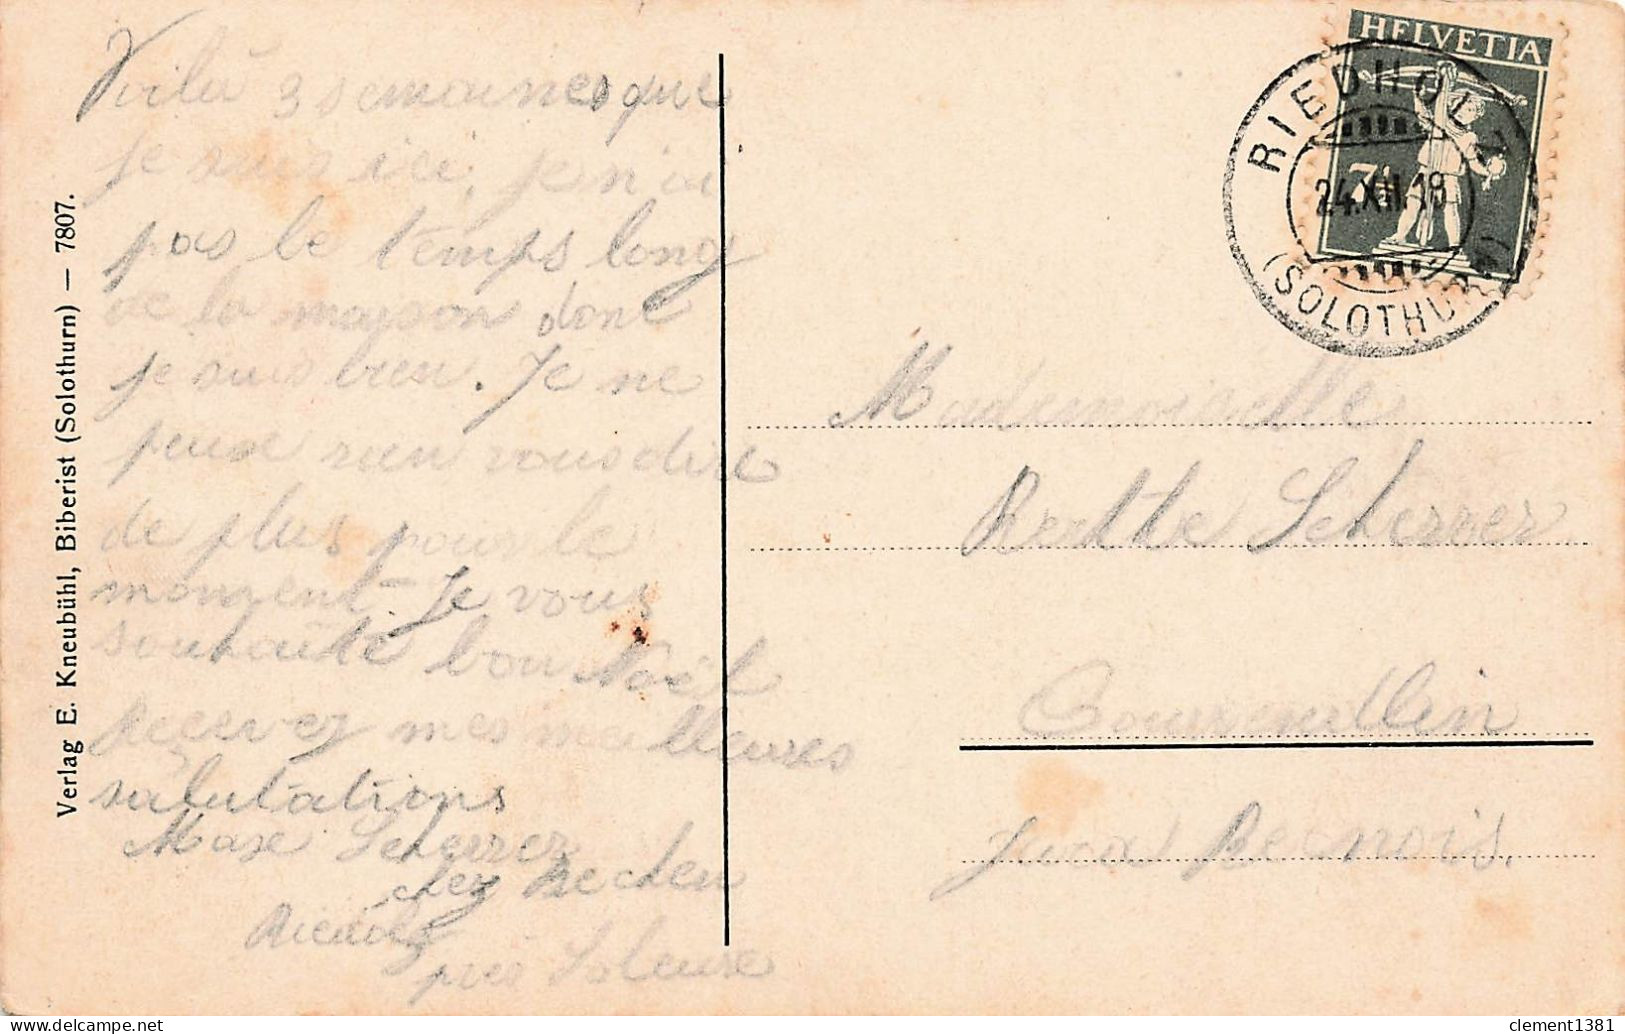 Voilà 3 semaines que
je suis ici, je n'ai
pas le temps long
de la mayson dont
je suis bien. Je ne
peux rien vous dire
de plus pour le
moment. Je vous
souhaite bon Noël
Recevez mes meilleures
salutations
Maxe Scherrer
chez
près Soleure
Verlag E. Kneubühl, Biberist (Solothurn) — 7807.
HELVETIA
7½
RIEDHOLZ
24.XII.18
(SOLOTHURN)
Mademoiselle
Berthe Scherrer
Courrendlin
Jura Bernois.
delcampe.net
clement1381